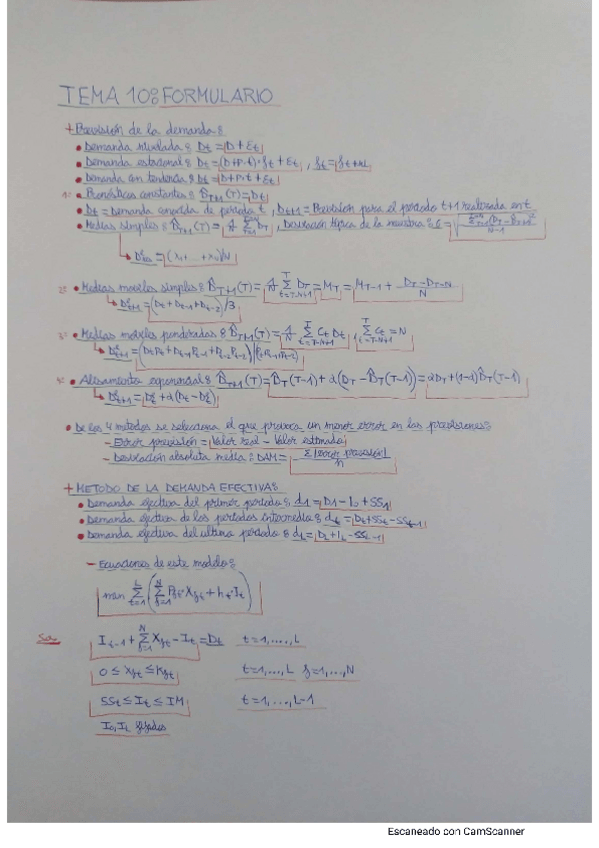 TEMA 10: FORMULARIO
+ Previsión de la demanda:
• Demanda nivelada: Dt = D + Et
• Demanda estacional: Dt = (D+P·t)·ft + Et, ft = ft+nL
• Demanda con tendencia: Dt = D + P·t + Et
1º • Pronósticos constantes: D̂T+1(T) = Dt
• Dt = Demanda conocida de período t, Dt+1 = Previsión para el período t+1 realizada en t
• Medias simples: D̂T+1(T) = 1/T Σ DT, Desviación típica de la muestra:
2º • Medias moviles simples: D̂T+1(T) = 1/N Σ t=T-N+1 T DT = MT = MT-1 + (DT - DT-N)/N
Dt+1 = (Dt + Dt-1 + Dt-2)/3
3º • Medias moviles ponderadas: D̂T+1(T) = 1/N Σ t=T-N+1 T Ct Dt, Σ t=T-N+1 T Ct = N
4º • Alisamiento exponencial: D̂T+1(T) = D̂T(T-1) + α(DT - D̂T(T-1)) = αDT + (1-α)D̂T(T-1)
• De los 4 metodos se selecciona el que provoca un menor error en las previsiones:
- Error previsión = |Valor real - Valor estimado|
- Desviacion absoluta media: DAM = Σ|error previsión|/n
+ METODO DE LA DEMANDA EFECTIVA:
• Demanda efectiva del primer período: d1 = D1 - I0 + SS1
• Demanda efectiva de los períodos intermedios: dt = Dt + SSt - SSt-1
• Demanda efectiva del ultimo período: dL = DL + IL - SSL-1
- Ecuaciones de este modelo:
min Σ t=1 L (Σ j=1 N Pjt·Xjt + ht·It)
S.a. It-1 + Σ j=1 N Xjt - It = Dt t=1,....,L
0 ≤ Xjt ≤ Kjt t=1,...,L j=1,...,N
SSt ≤ It ≤ IM t=1,...,L-1
I0, IL fijados
Escaneado con CamScanner